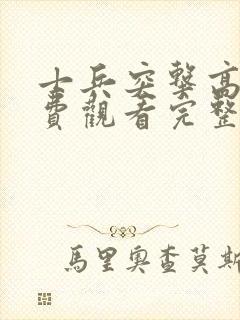 士兵突擊高
費觀看完整
馬里奧查莫斯